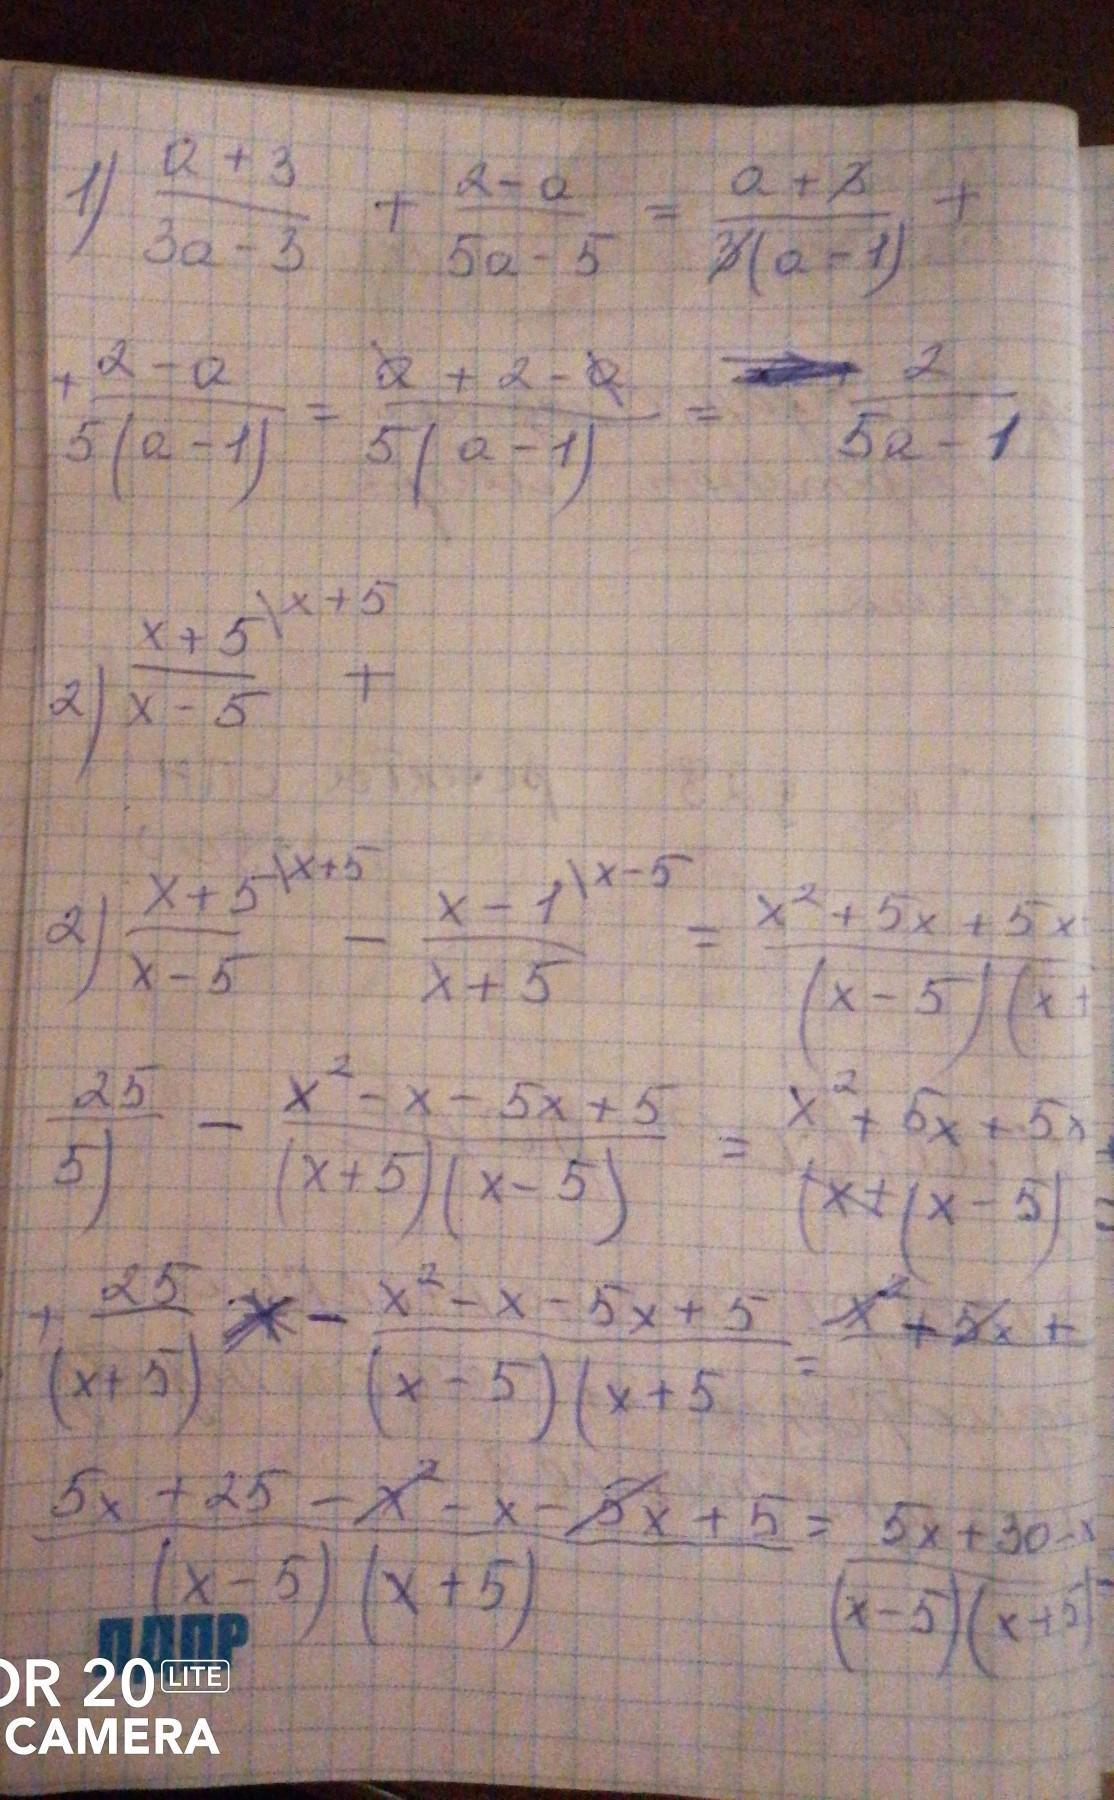 1) (a + 3)/(3a - 3) + (2 - a)/(5a - 5) = (a + 3)/(3(a - 1)) +
+ (2 - a)/(5(a - 1)) = (a + 2 - a)/(5(a - 1)) = 2/(5a - 1)
2) (x + 5)/(x - 5) \x + 5 +
2) (x + 5)/(x - 5) \x + 5 - (x - 1)/(x + 5) \x - 5 = (x² + 5x + 5x)/((x - 5)(x +
25/5) - (x² - x - 5x + 5)/((x + 5)(x - 5)) = (x² + 5x + 5x +)/((x - 5)
+ 25/(x + 5) - (x² - x - 5x + 5)/((x - 5)(x + 5) = x² + 5x +
(5x + 25 - x² - x - 5x + 5)/((x - 5)(x + 5)) = (5x + 30 - x)/((x - 5)(x + 5)
OR 20 LITE
CAMERA